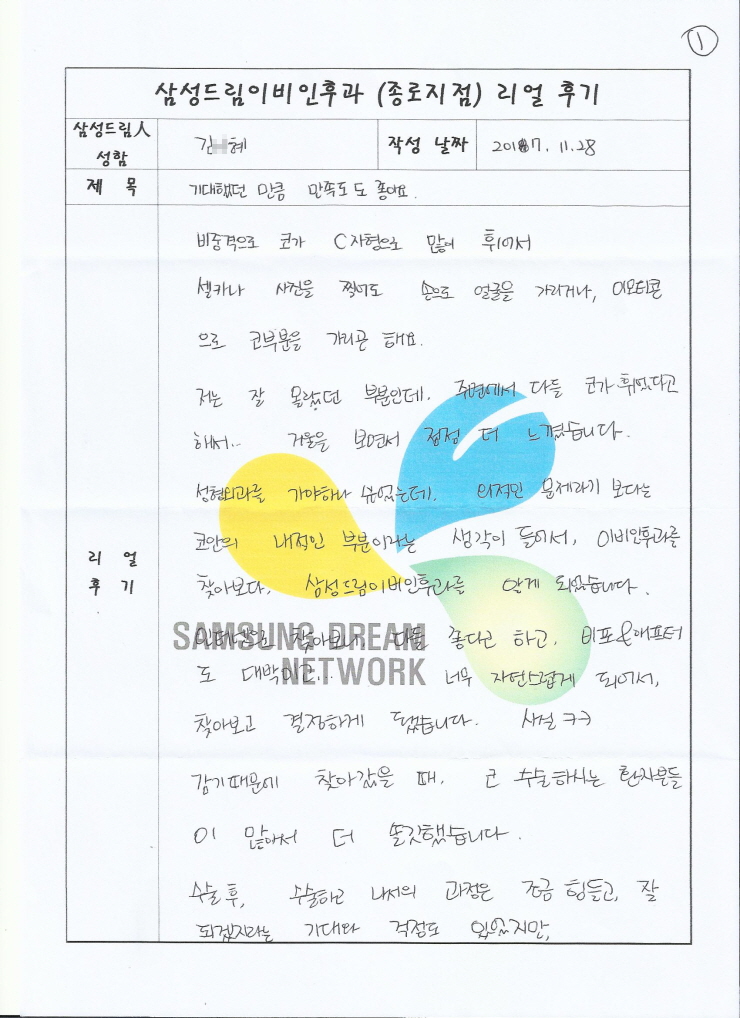 1
삼성드림이비인후과 (종로지점) 리얼 후기
삼성드림人 성함
김 혜
작성 날짜
2017. 11.28
제 목
기대했던 만큼 만족도도 좋아요.
리 얼
후 기
비중격으로 코가 C자형으로 많이 휘어서
셀카나 사진을 찍어도 손으로 얼굴을 가리거나, 이모티콘
으로 코부분을 가리곤 해요.
저는 잘 몰랐던 부분인데. 주변에서 다들 코가 휘었다고
해서.. 거울을 보면서 점점 더 느꼈습니다.
성형외과를 가야하나 싶었는데, 외적인 문제라기 보다는
코안의 내적인 부분이라는 생각이 들어서, 이비인후과를
찾아보다, 삼성드림이비인후과를 알게 되었습니다.
인터넷으로 찾아보니, 다들 좋다고 하고. 비포&애프터
도 대박이고... 너무 자연스럽게 되어서,
찾아보고 결정하게 됐습니다. 사실 ㅋㅋ
감기때문에 찾아갔을 때, 코 수술하시는 환자분들
이 많아서 더 쏠깃했습니다.
수술 후, 수술하고 나서의 과정은 조금 힘들고, 잘
되겠지라는 기대와 걱정도 있었지만,
SAMSUNG DREAM
NETWORK